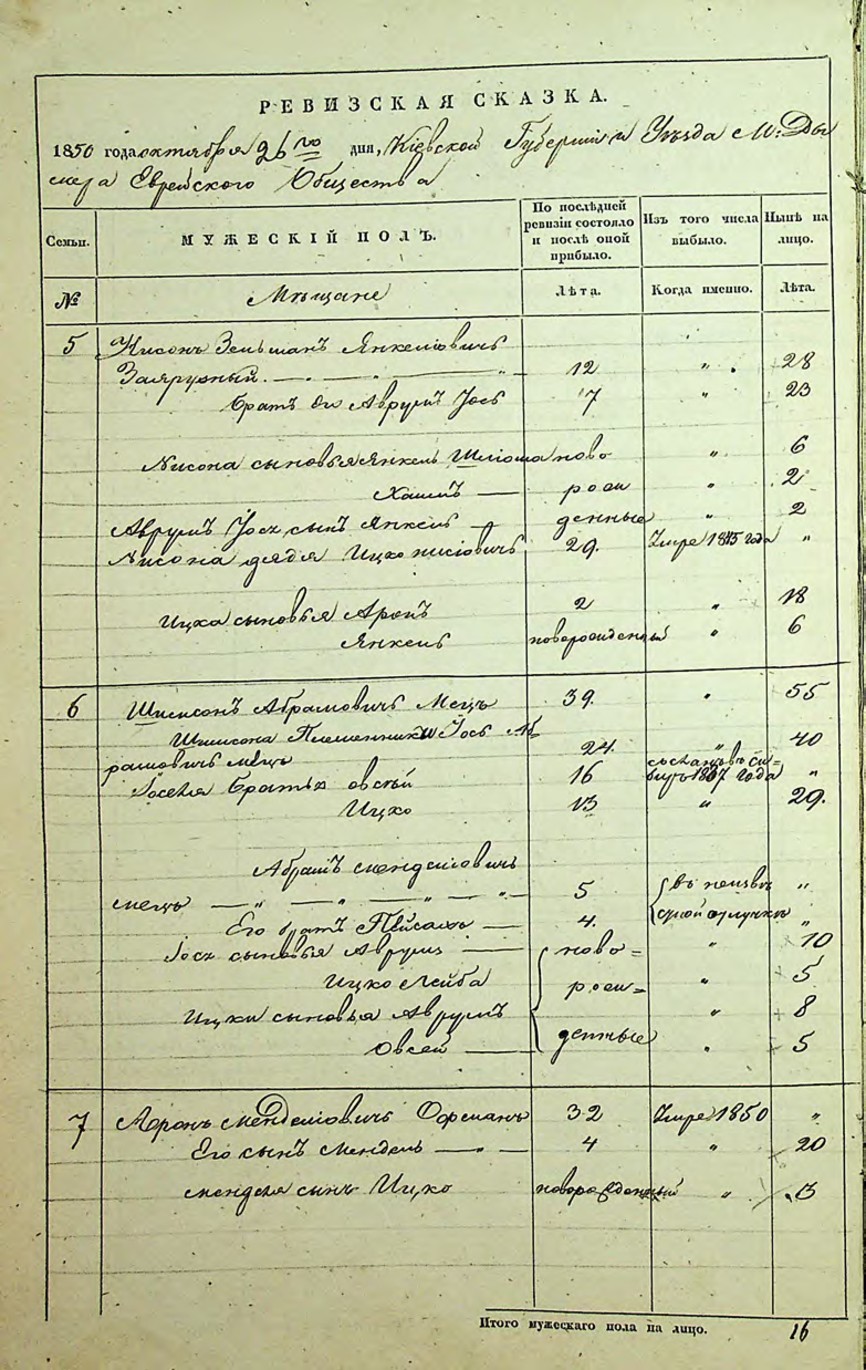 РЕВИЗСКАЯ СКАЗКА.
1850 года октября 26го дня, Кіевской Губерніи и Уезда М. Ды
мера Еврейского Общества
Семьи. МУЖЕСКІЙ ПОЛЪ. По послѣдней ревизіи состояло и послѣ оной прибыло. Изъ того числа выбыло. Нынѣ на лицо.
№ Мещане Лѣта. Когда именно. Лѣта.
5 Нисонъ Зельманъ Янкелiовичъ
12 " 28
братъ его Аврумъ Іось 7 " 23
Нисона сыновья Янкель Шліома ново " 6
Хаимъ — рож " 2
Аврумъ Іося сынъ Янкель — денные " 2
Нисона дядя Ицко Нисіовичъ 29. Умре 1845 года "
Ицка сыновья Аронъ 2 " 18
Янкель новорожденный " 6
6 Шимсонъ Абрамовичъ Мецъ 39. " 55
Шимсона Племянники Іось Аб
рамовичъ Мецъ 24. " 40
Іоселя братья Овсѣй 16 1837 года "
Ицко 13 " 29.
Абрамъ Менделіовичъ
Мецъ — " — " — " — " 5 въ неизвѣ "
Его братъ Пейсахъ — 4. стной отлучкѣ "
Іося сыновья Аврумъ — ново= " 10
Ицко Лейба рож= " 5
Ицки сыновья Аврумъ " 8
Овсей — денные " 5
7 Аронъ Менделіовичъ Фурманъ 32 Умре 1850 "
Его сынъ Мендель — " — 4 " 20
Менделя сынъ Ицко новорожденный " 3
Итого мужескаго пола на лицо. 16